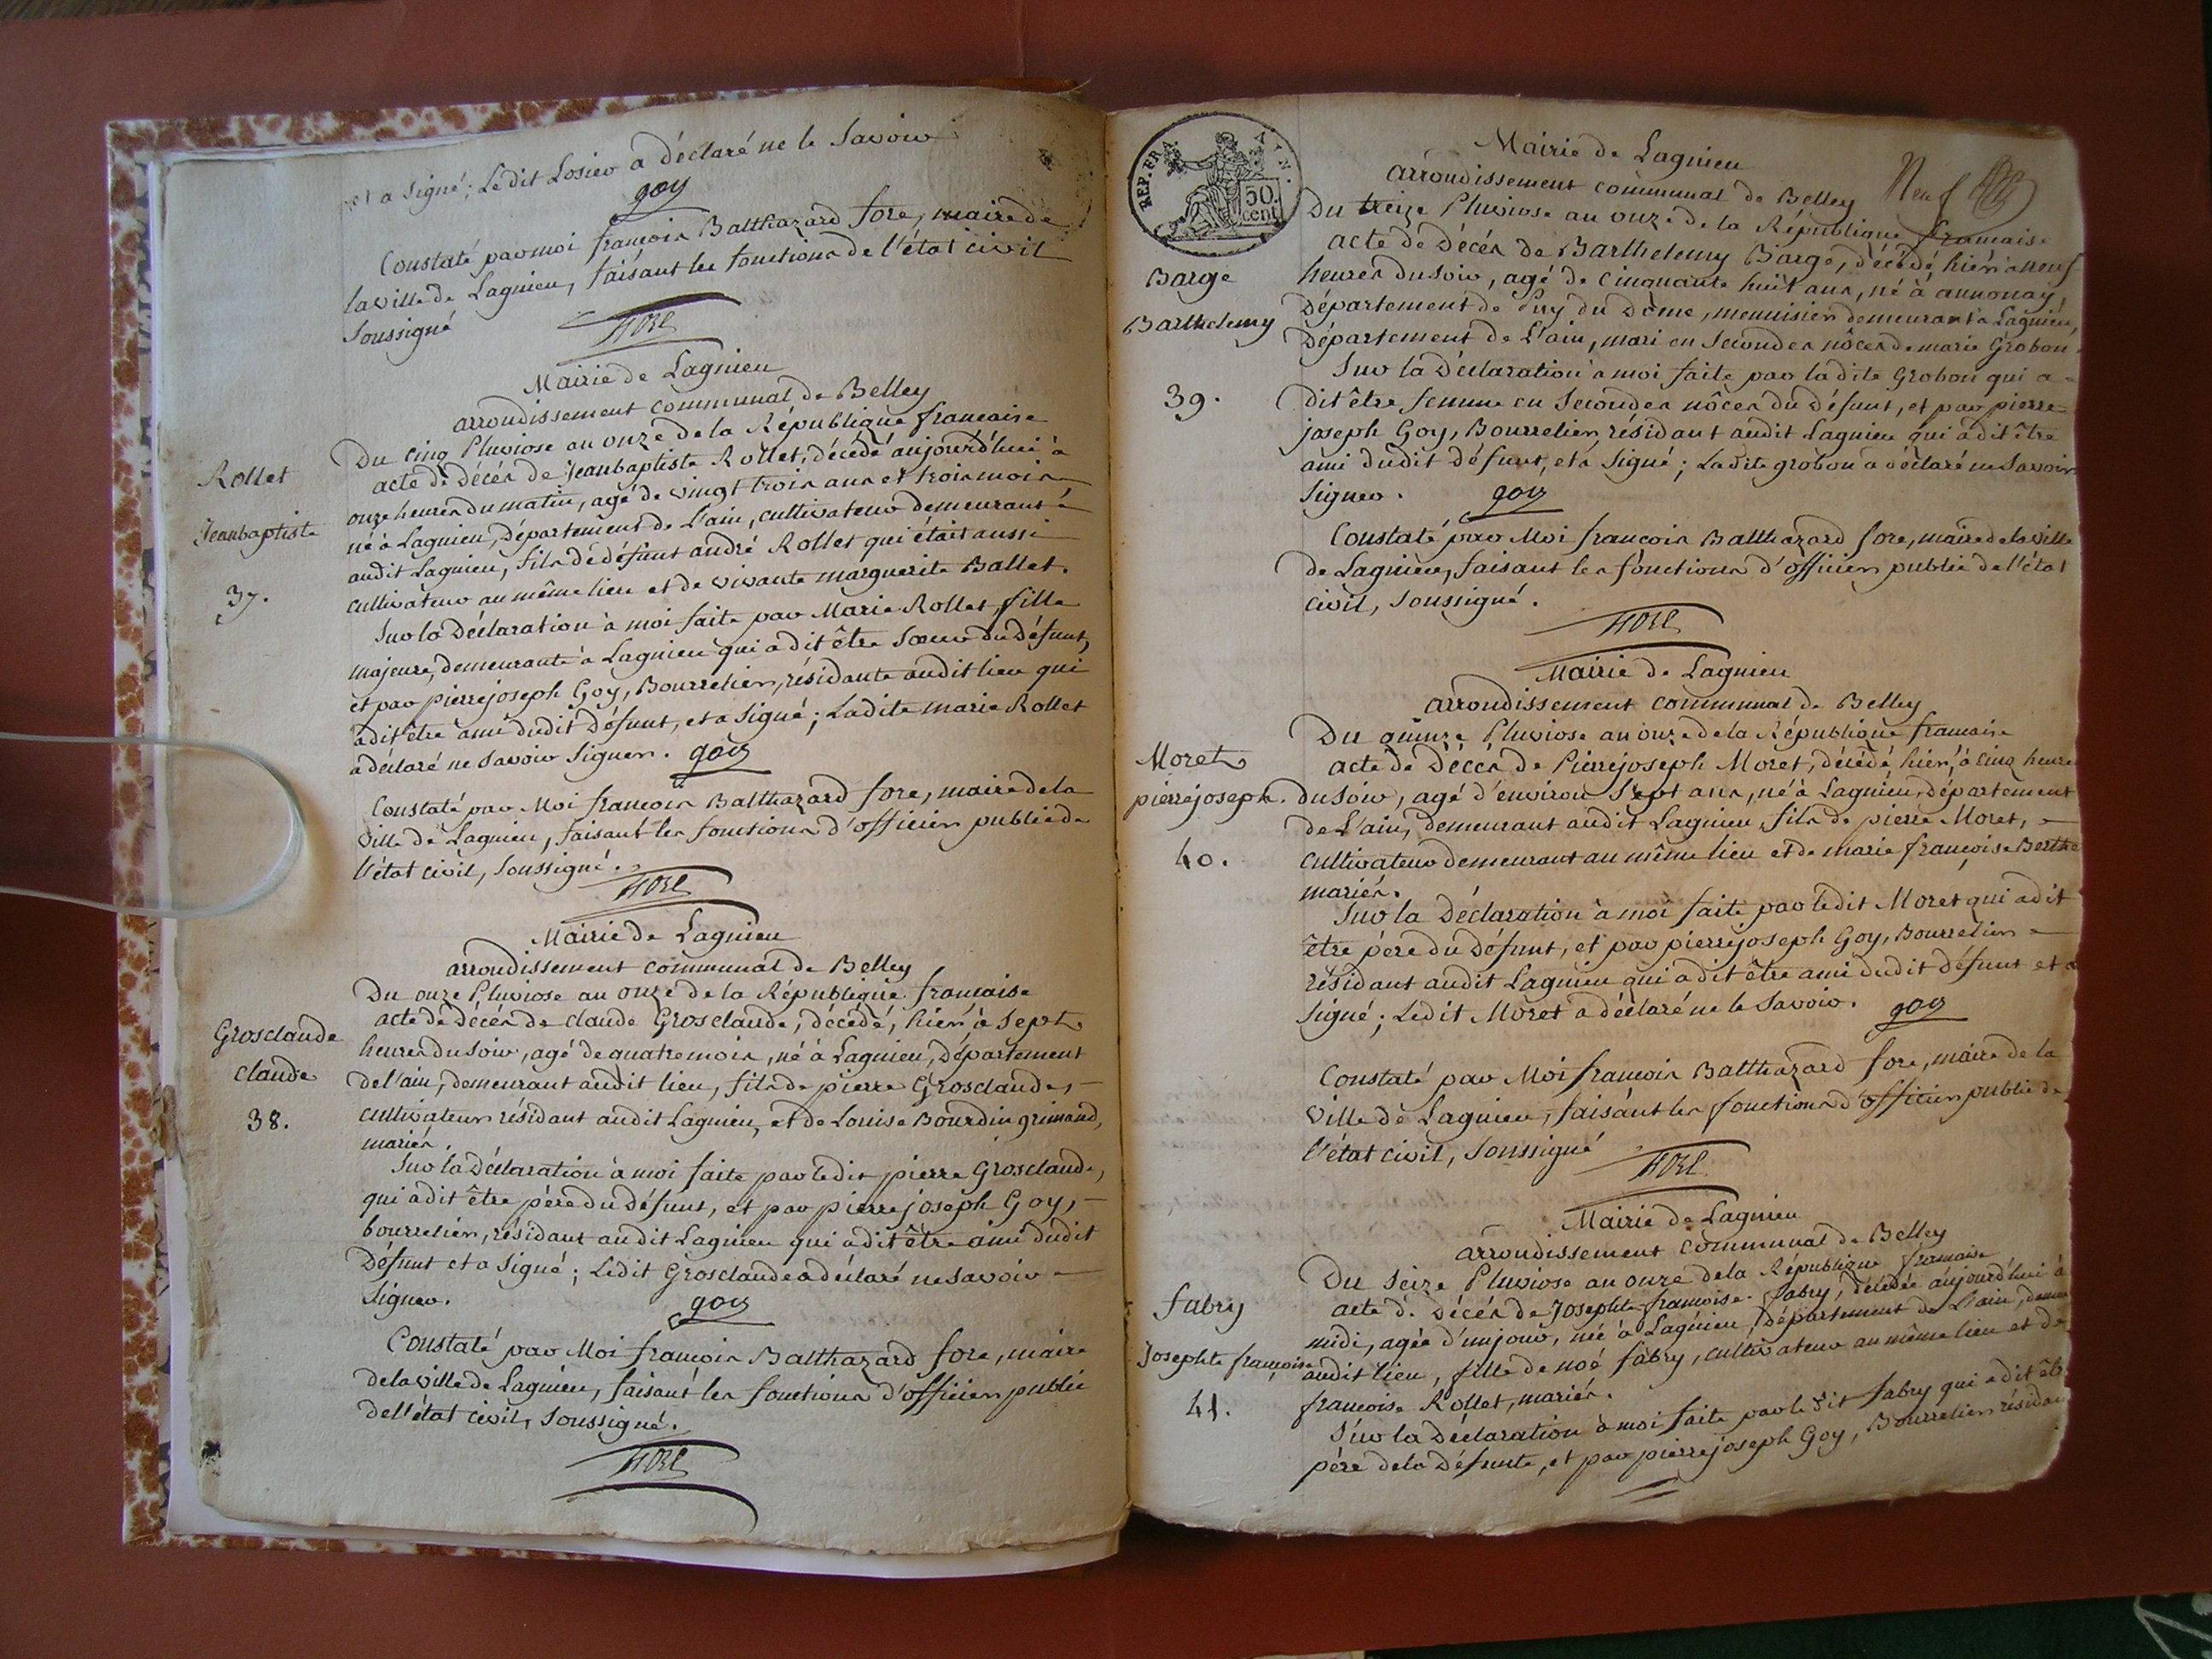 et a signé; Ledit Losier a déclaré ne le Savoir
goy
Constaté par moi françois Balthazard fore, maire de
la ville de Lagnieu, faisant les fonctions de l'état civil
Soussigné
FORE
Mairie de Lagnieu
arrondissement communal de Belley
Du cinq Pluviose an onze de la République francaise
Rollet
acte de Décés de Jeanbaptiste Rollet, décédé aujourd'hui à
onze heures du matin, agé de vingt trois ans et trois mois,
Jeanbaptiste
né à Lagnieu, Département de L'ain, cultivateur demeurant
audit Lagnieu, fils de défunt andré Rollet qui était aussi
37.
cultivateur au même lieu et de vivante marguerite Ballet.
Sur la Déclaration à moi faite par Marie Rollet, fille
majeure, demeurante à Lagnieu qui a dit être Sœur du Défunt,
et par pierrejoseph Goy, Bourrelier, résidante audit lieu qui
a dit être ami dudit Défunt, et a Signé; Ladite marie Rollet
a déclaré ne Savoir Signer. goy
Constaté par Moi francois Balthazard fore, maire de la
ville de Lagnieu, faisant les fonctions d'officier public de
l'état civil, Soussigné.
FORE
Mairie de Lagnieu
arrondissement communal de Belley
Du onze Pluviose an onze de la République francaise
Grosclaude
acte de Décés de claude Grosclaude, décédé, hier, à Sept
heures du Soir, agé de quatre mois, né à Lagnieu, Département
claude
de l'ain, demeurant audit lieu, fils de pierre Grosclaude,
38.
cultivateur résidant audit Lagnieu, et de Louise Bourdin grimaud,
mariés.
Sur la Déclaration à moi faite par ledit pierre Grosclaude,
qui a dit être père du Défunt, et par pierrejoseph Goy,
bourrelier, résidant audit Lagnieu qui a dit être ami dudit
Défunt et a Signé; Ledit Grosclaude a déclaré ne Savoir
Signer.
goy
Constaté par Moi françois Balthazard fore, maire
de la ville de Lagnieu, faisant les fonctions d'officier public
de l'état civil, Soussigné.
FORE
REP. FRA.
AIN.
50.
cent
Mairie de Lagnieu
arrondissement communal de Belley
Neuf
Du treize Pluviose an onze de la République francaise
acte de Décés de Barthelemy Barge, décédé, hier à neuf
Barge
heures du Soir, agé de cinquante huit ans, né à annonay,
Barthelemy
Département de Puy du Dôme, menuisier demeurant à Lagnieu,
Département de L'ain, mari en Secondes nôces de marie Grobon.
Sur la Déclaration à moi faite par ladite Grobon qui a
39.
dit être femme en Secondes nôces du Défunt, et par pierre
joseph Goy, Bourrelier, résidant audit Lagnieu qui a dit être
ami dudit Défunt, et a Signé; Ladite grobon a déclaré ne Savoir
Signer. goy
Constaté par Moi françois Balthazard fore, maire de la ville
de Lagnieu, faisant les fonctions d'officier public de l'état
civil, Soussigné.
FORE
Mairie de Lagnieu
arrondissement communal de Belley
Du quinze Pluviose an onze de la République francaise
Moret
acte de Décés de Pierrejoseph Moret, décédé hier, à cinq heures
pierrejoseph.
du Soir, agé d'environ Sept ans, né à Lagnieu, département
de L'ain, demeurant audit Lagnieu, fils de pierre Moret,
40.
cultivateur demeurant au même lieu et de marie françoise Berthe
mariés.
Sur la Déclaration à moi faite par ledit Moret qui a dit
être père du Défunt, et par pierrejoseph Goy, Bourrelier
résidant audit Lagnieu qui a dit être ami dudit Défunt et a
Signé; Ledit Moret a déclaré ne le Savoir. goy
Constaté par Moi francois Balthazard fore, maire de la
ville de Lagnieu, faisant les fonctions d'officier public de
l'état civil, Soussigné
FORE
Mairie de Lagnieu
arrondissement communal de Belley
Du Seize Pluviose an onze de la République francaise
fabry
acte de Décés de Josephte francoise fabry, décédée aujourd'hui à
midi, agée d'un jour, née à Lagnieu, département de L'ain,
Josephte françoise
audit lieu, fille de noé fabry, cultivateur au même lieu et de
41.
francoise Rollet, mariés.
Sur la Déclaration à moi faite par le dit fabry qui a dit être
père de la Défunte, et par pierrejoseph Goy, Bourrelier résidant